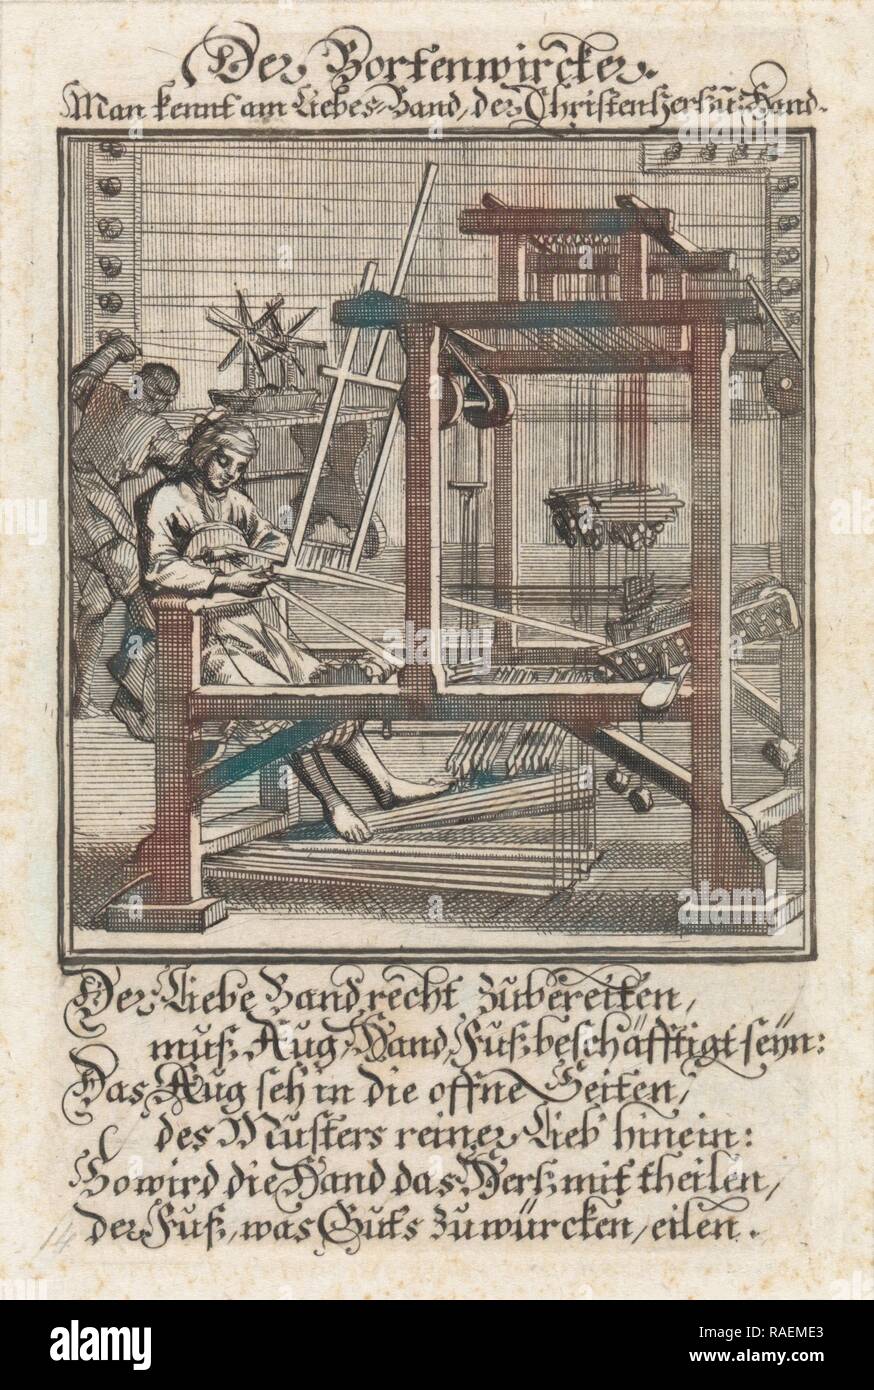 Der Bortenwircker.
Man kennt am Liebes-Band, der Christen Herz u: Hand.
Der Liebe Band recht zubereiten,
muß Aug, Hand, Fuß beschäfftigt seyn:
Das Aug seh in die offne Seiten,
des Musters reiner Lieb' hinein:
So wird die Hand das Werk mittheilen,
der Fuß, was Guts zu würcken, eilen.
14
alamy
alamy
Image ID: RAEME3
www.alamy.com